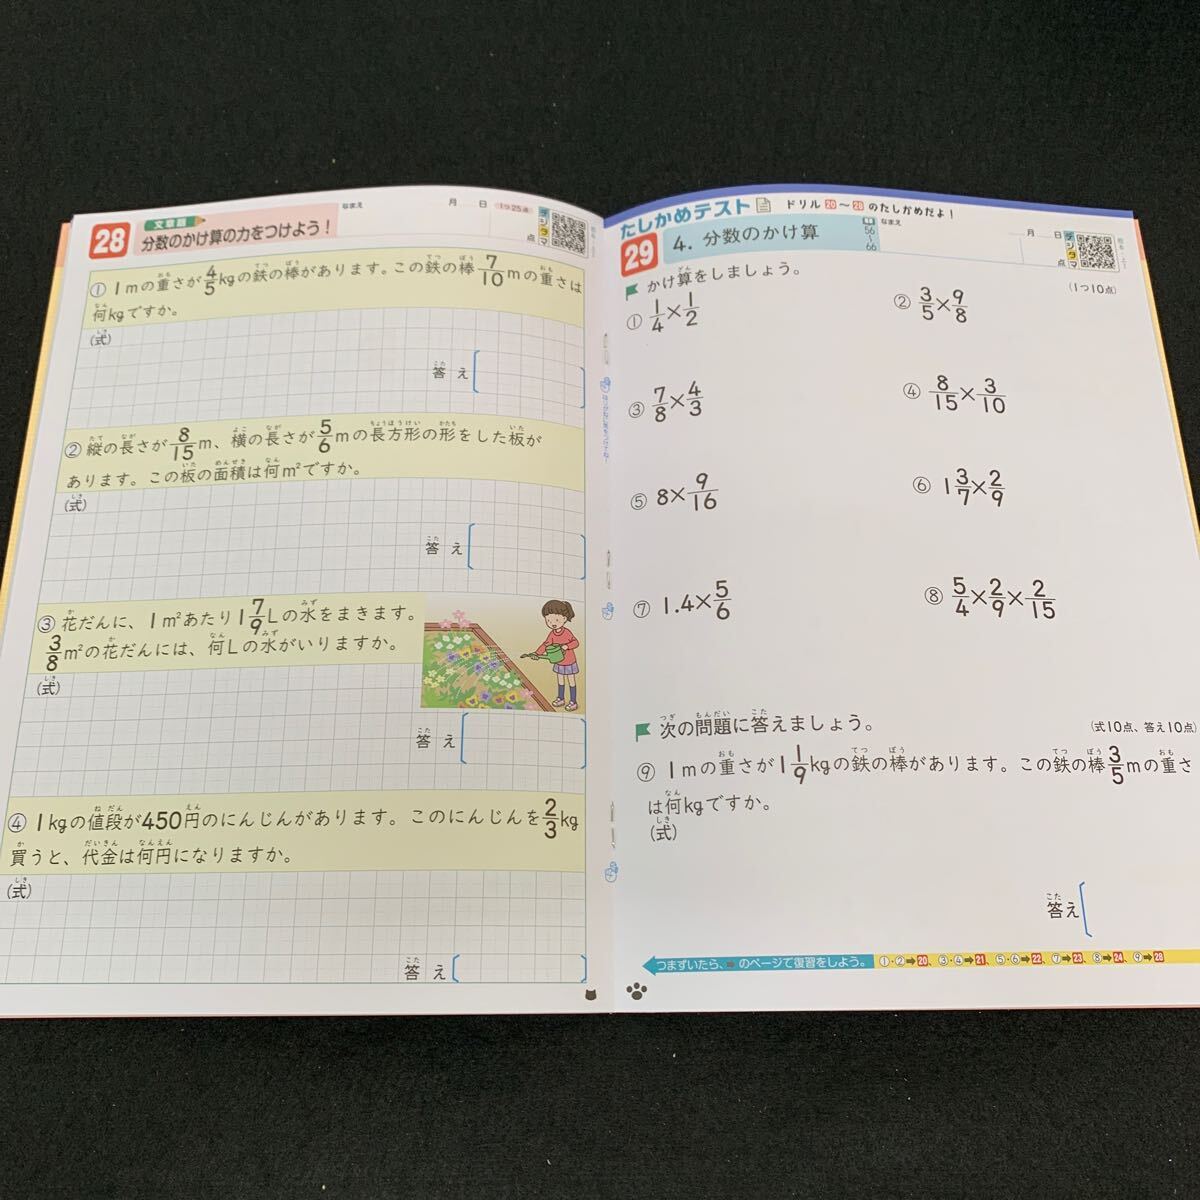 28 文章題 分数のかけ算の力をつけよう！
なまえ 月 日 1つ25点 点 デジタマ
① 1mの重さが4/5kgの鉄の棒があります。この鉄の棒7/10mの重さは
何kgですか。
(式)
答え
② 縦の長さが8/15m、横の長さが5/6mの長方形の形をした板が
あります。この板の面積は何m²ですか。
(式)
答え
③ 花だんに、1m²あたり1 7/9Lの水をまきます。
3/8m²の花だんには、何Lの水がいりますか。
(式)
答え
④ 1kgの値段が450円のにんじんがあります。このにんじんを2/3kg
買うと、代金は何円になりますか。
(式)
答え
たしかめテスト ドリル20〜28のたしかめだよ！
29 4. 分数のかけ算 56〜66 なまえ 月 日 点 デジタマ
かけ算をしましょう。 (1つ10点)
① 1/4×1/2
② 3/5×9/8
③ 7/8×4/3
④ 8/15×3/10
⑤ 8×9/16
⑥ 1 3/7×2/9
⑦ 1.4×5/6
⑧ 5/4×2/9×2/15
次の問題に答えましょう。 (式10点、答え10点)
⑨ 1mの重さが1 1/9kgの鉄の棒があります。この鉄の棒3/5mの重さ
は何kgですか。
(式)
答え
つまずいたら、➡のページで復習をしよう。 ①・②➡20、③・④➡21、⑤・⑥➡22、⑦➡23、⑧➡24、⑨➡28